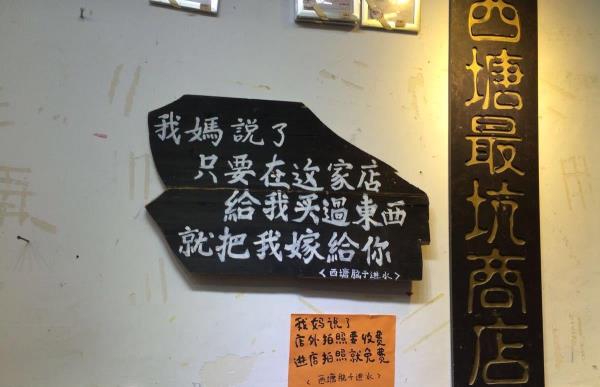 我媽說了
只要在这家店
給我买過東西
就把我嫁給你
＜西塘脑子进水＞
西塘最坑商店
我妈说了
店外拍照要收费
进店拍照就免费
＜西塘脑子进水＞